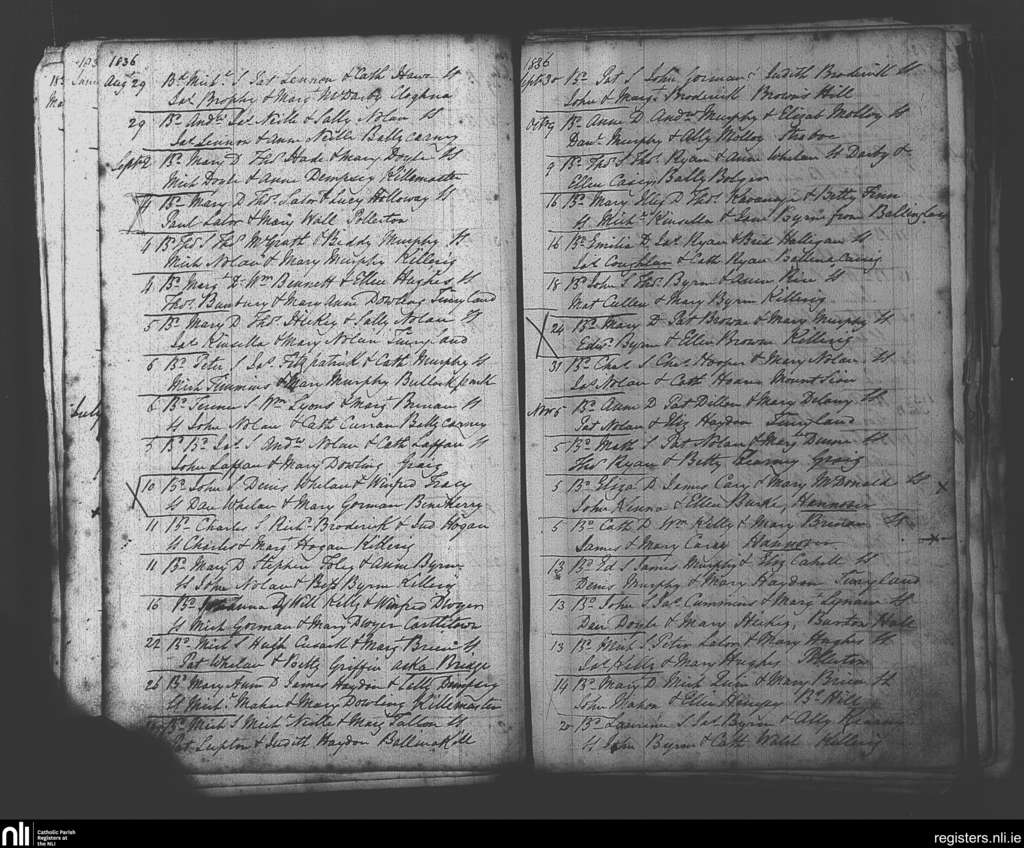 1836
Augt 29 Bd Michl S Pat Lennon & Cath Hawe Ss
Jas Brophy & Margt McDarby Cloghna
29 Bd Andw Jas Neill & Sally Nolan Ss
Jas Lennon & Anne Neill Ballycarney
Septr 2 Bd Mary D Thos Hade & Mary Doyle Ss
Mich Doyle & Anne Dempsey Killemaster
4 Bd Mary D Thos Lalor & Lucy Holloway Ss
Paul Lalor & Mary Wall Pollerton
4 Bd Thos S Thos McGrath & Biddy Murphy Ss
Mich Nolan & Mary Murphy Killerig
4 Bd Margt D Wm Bennett & Ellen Hughes Ss
Thos Banbury & Mary Ann Dowling Tinryland
5 Bd Mary D Thos Hickey & Sally Nolan Ss
Jas Kinsella & Mary Nolan Tinryland
6 Bd Peter S Jas Fitzpatrick & Cath Murphy Ss
Mich Timmons & Mary Murphy
6 Bd S Wm Lyons & Margt Ss
Ss John Nolan & Cath Curran Ballycarney
5 Bd Jas S Andw Nolan & Cath Laffan Ss
John Laffan & Mary Dowling Graig
10 Bd John S Denis Whelan & Winfred Tracy
Ss Dan Whelan & Mary Gorman Benekerry
11 Bd Charles S Richd Broderick & Jud Hogan
Ss Charles & Margt Hogan Killerig
11 Bd Mary D Stephen Foley & Anne Byrne
Ss John Nolan & Bess Byrn Killerig
16 Bd Johanna D Will Kelly & Winfred Dwyer
Ss Mich Gorman & Mary Dwyer Castletown
22 Bd Mich S Hugh Cusack & Margt Brien Ss
Pat Whelan & Betty Griffin Bridge
26 Bd Mary Ann D James Haydon & Dempsey
Ss Michl Maher & Mary Dowling Killemaster
Bd Mich S Michl Neille & Margt Fallon Ss
Pat Lupton & Judith Haydon Ballinakill
1836
Septr 30 Bd Pat S John Gorman & Judith Broderick Ss
John & Margt Broderick Browns Hill
Octr 9 Bd Anne D Andw Murphy & Elizat Molloy Ss
Danl Murphy & Ally Molloy Straboe
9 Bd Thos S Thos Ryan & Ann Whelan Ss Darby &
Ellen Casey Bally Bolger
16 Bd Mary Eliz D Thos Kavanagh & Betty Finn
Ss Michl Kinsella & Jane Byrne from Ballinglass
16 Bd Emilia D Jas Ryan & Brid Hallegan Ss
Jas Coughlan & Cath Ryan Ballinacarrig
18 Bd John S Thos Byrn & Ss
Mat Cullen & Mary Byrn Killerig
24 Bd Mary D Pat Browne & Mary Murphy Ss
Edwd Byrn & Ellen Browne Killerig
31 Bd Chas S Chas Hooper & Mary Nolan Ss
Jas Nolan & Cath Hoare Mount Sion
Novr 5 Bd Anne D Pat Dillon & Mary Delany Ss
Pat Nolan & Eliz Haydon Tinryland
5 Bd Math S Pat Nolan & Margt Dunne Ss
Thos Ryan & Betty Kearney Graig
5 Bd Eliza D James Cary & Mary McDonald Ss
John Kinna & Ellen Burke, Hannover
5 Bd Cath D Wm Kelly & Mary Ss
James & Mary Carr Hannover
13 Bd Ed S James Murphy & Eliz Cahill Ss
Denis Murphy & Mary Haydon Tinryland
13 Bd John S Jas Cummins & Margt Lynam Ss
Dan Doyle & Mary Hickey, Burton Hall
13 Bd Mich S Peter Lalor & Mary Hughes Ss
Jas Kelly & Mary Hughes Pollerton
14 Bd Mary D Mich & Mary Brien Ss
John Mahon & Ellen Bs Hill
20 Bd Laurence S Jas Byrn & Ally Ss
Ss John Byrn & Cath Walsh Killerig
nli
Catholic Parish
Registers at
the NLI
registers.nli.ie